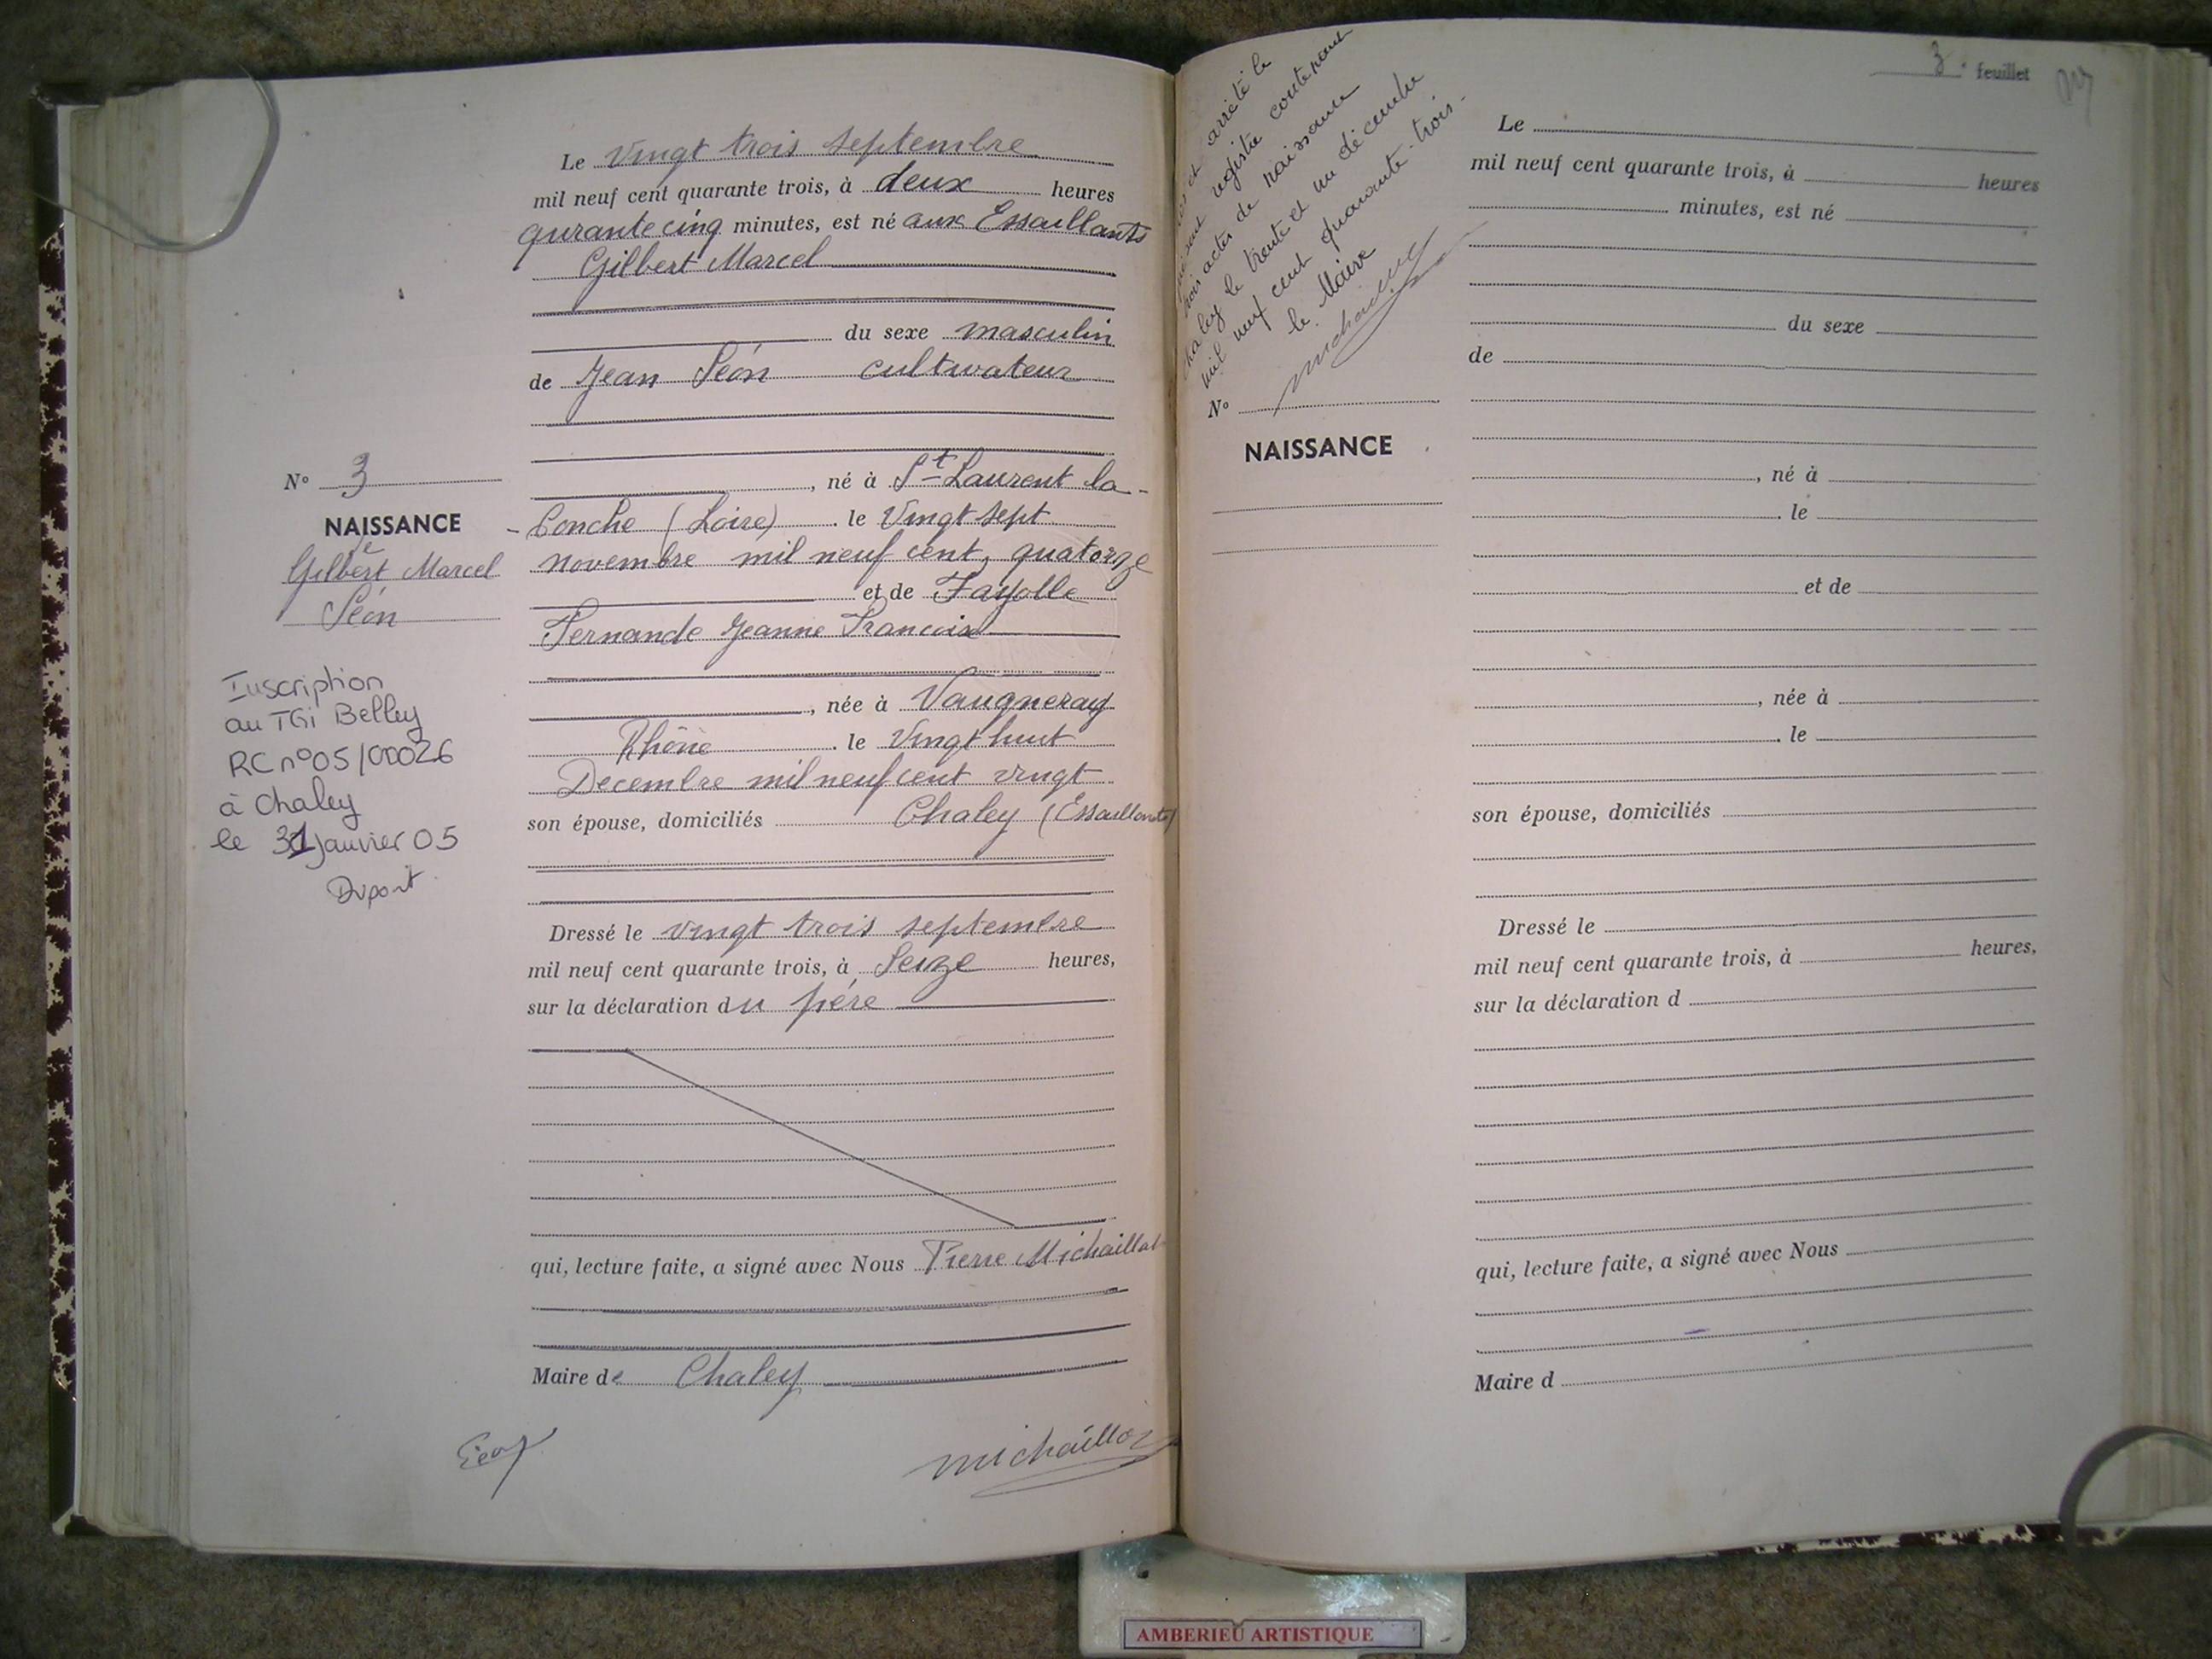 Le Vingt trois septembre
mil neuf cent quarante trois, à deux heures
qurante cinq minutes, est né aux Essaillants
Gilbert Marcel
du sexe masculin
de Jean Séon cultivateur
, né à St Laurent la-
-Conche (Loire) le Vingt sept
novembre mil neuf cent, quatorze
et de Fayolle
Fernande Jeanne Francoise
, née à Vaugneray
Rhône le Vingt huit
Decembre mil neuf cent vingt
son épouse, domiciliés Chaley (Essaillants)
Dressé le vingt trois septembre
mil neuf cent quarante trois, à Seize heures,
sur la déclaration du père
qui, lecture faite, a signé avec Nous Pierre Michaillat
Maire de Chaley
Séon
michaillat
N° 3
NAISSANCE
de
Gilbert Marcel
Séon
Inscription
au TGi Belley
RC n°05/00026
à Chaley
le 31 Janvier 05
Dupont
3e feuillet
et arrêté le
présent registre contenant
trois actes de naissance
Chaley le trente et un décembre
mil neuf cent quarante-trois.
le Maire
michaillat
N°
NAISSANCE
Le
mil neuf cent quarante trois, à heures
minutes, est né
du sexe
de
, né à
le
et de
, née à
le
son épouse, domiciliés
Dressé le
mil neuf cent quarante trois, à heures,
sur la déclaration d
qui, lecture faite, a signé avec Nous
Maire d
AMBERIEU ARTISTIQUE